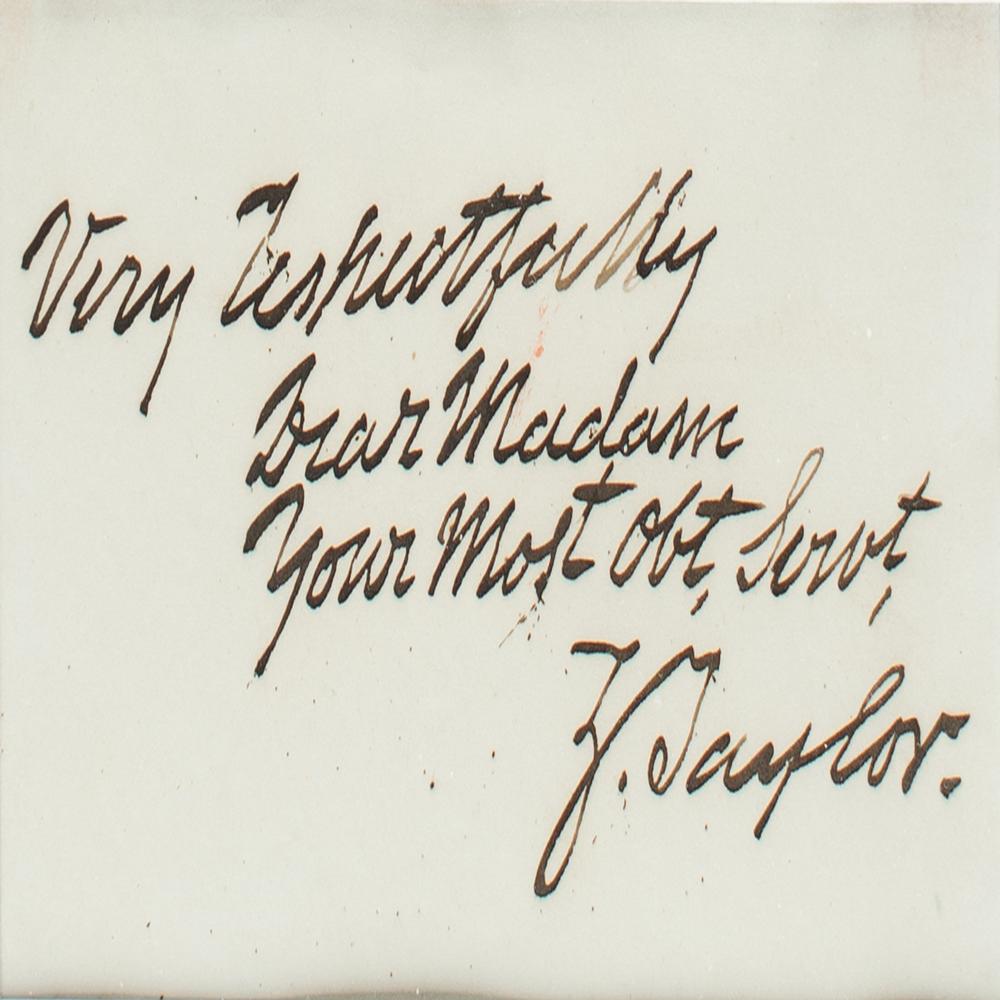 Very Respectfully
Dear Madam
Your Most Obt, Servt,
Z. Taylor.